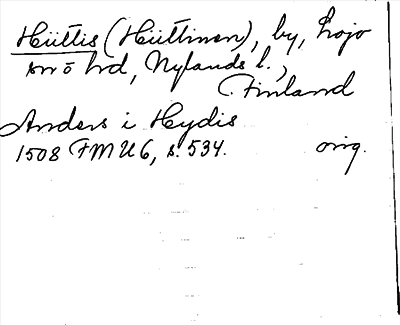 Hüttis (Hüttinen), by, Lojo
sn o hd, Nylands l.,
Finland
Anders i Hydis
1508 FMU 6, s. 534. orig.